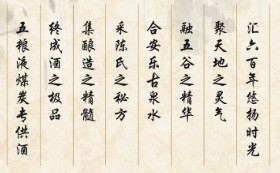 汇六百年悠扬时光
聚天地之灵气
融五谷之精华
合安乐古泉水
采陈氏之秘方
集酿造之精髓
终成酒之极品
五粮液煤炭专供酒